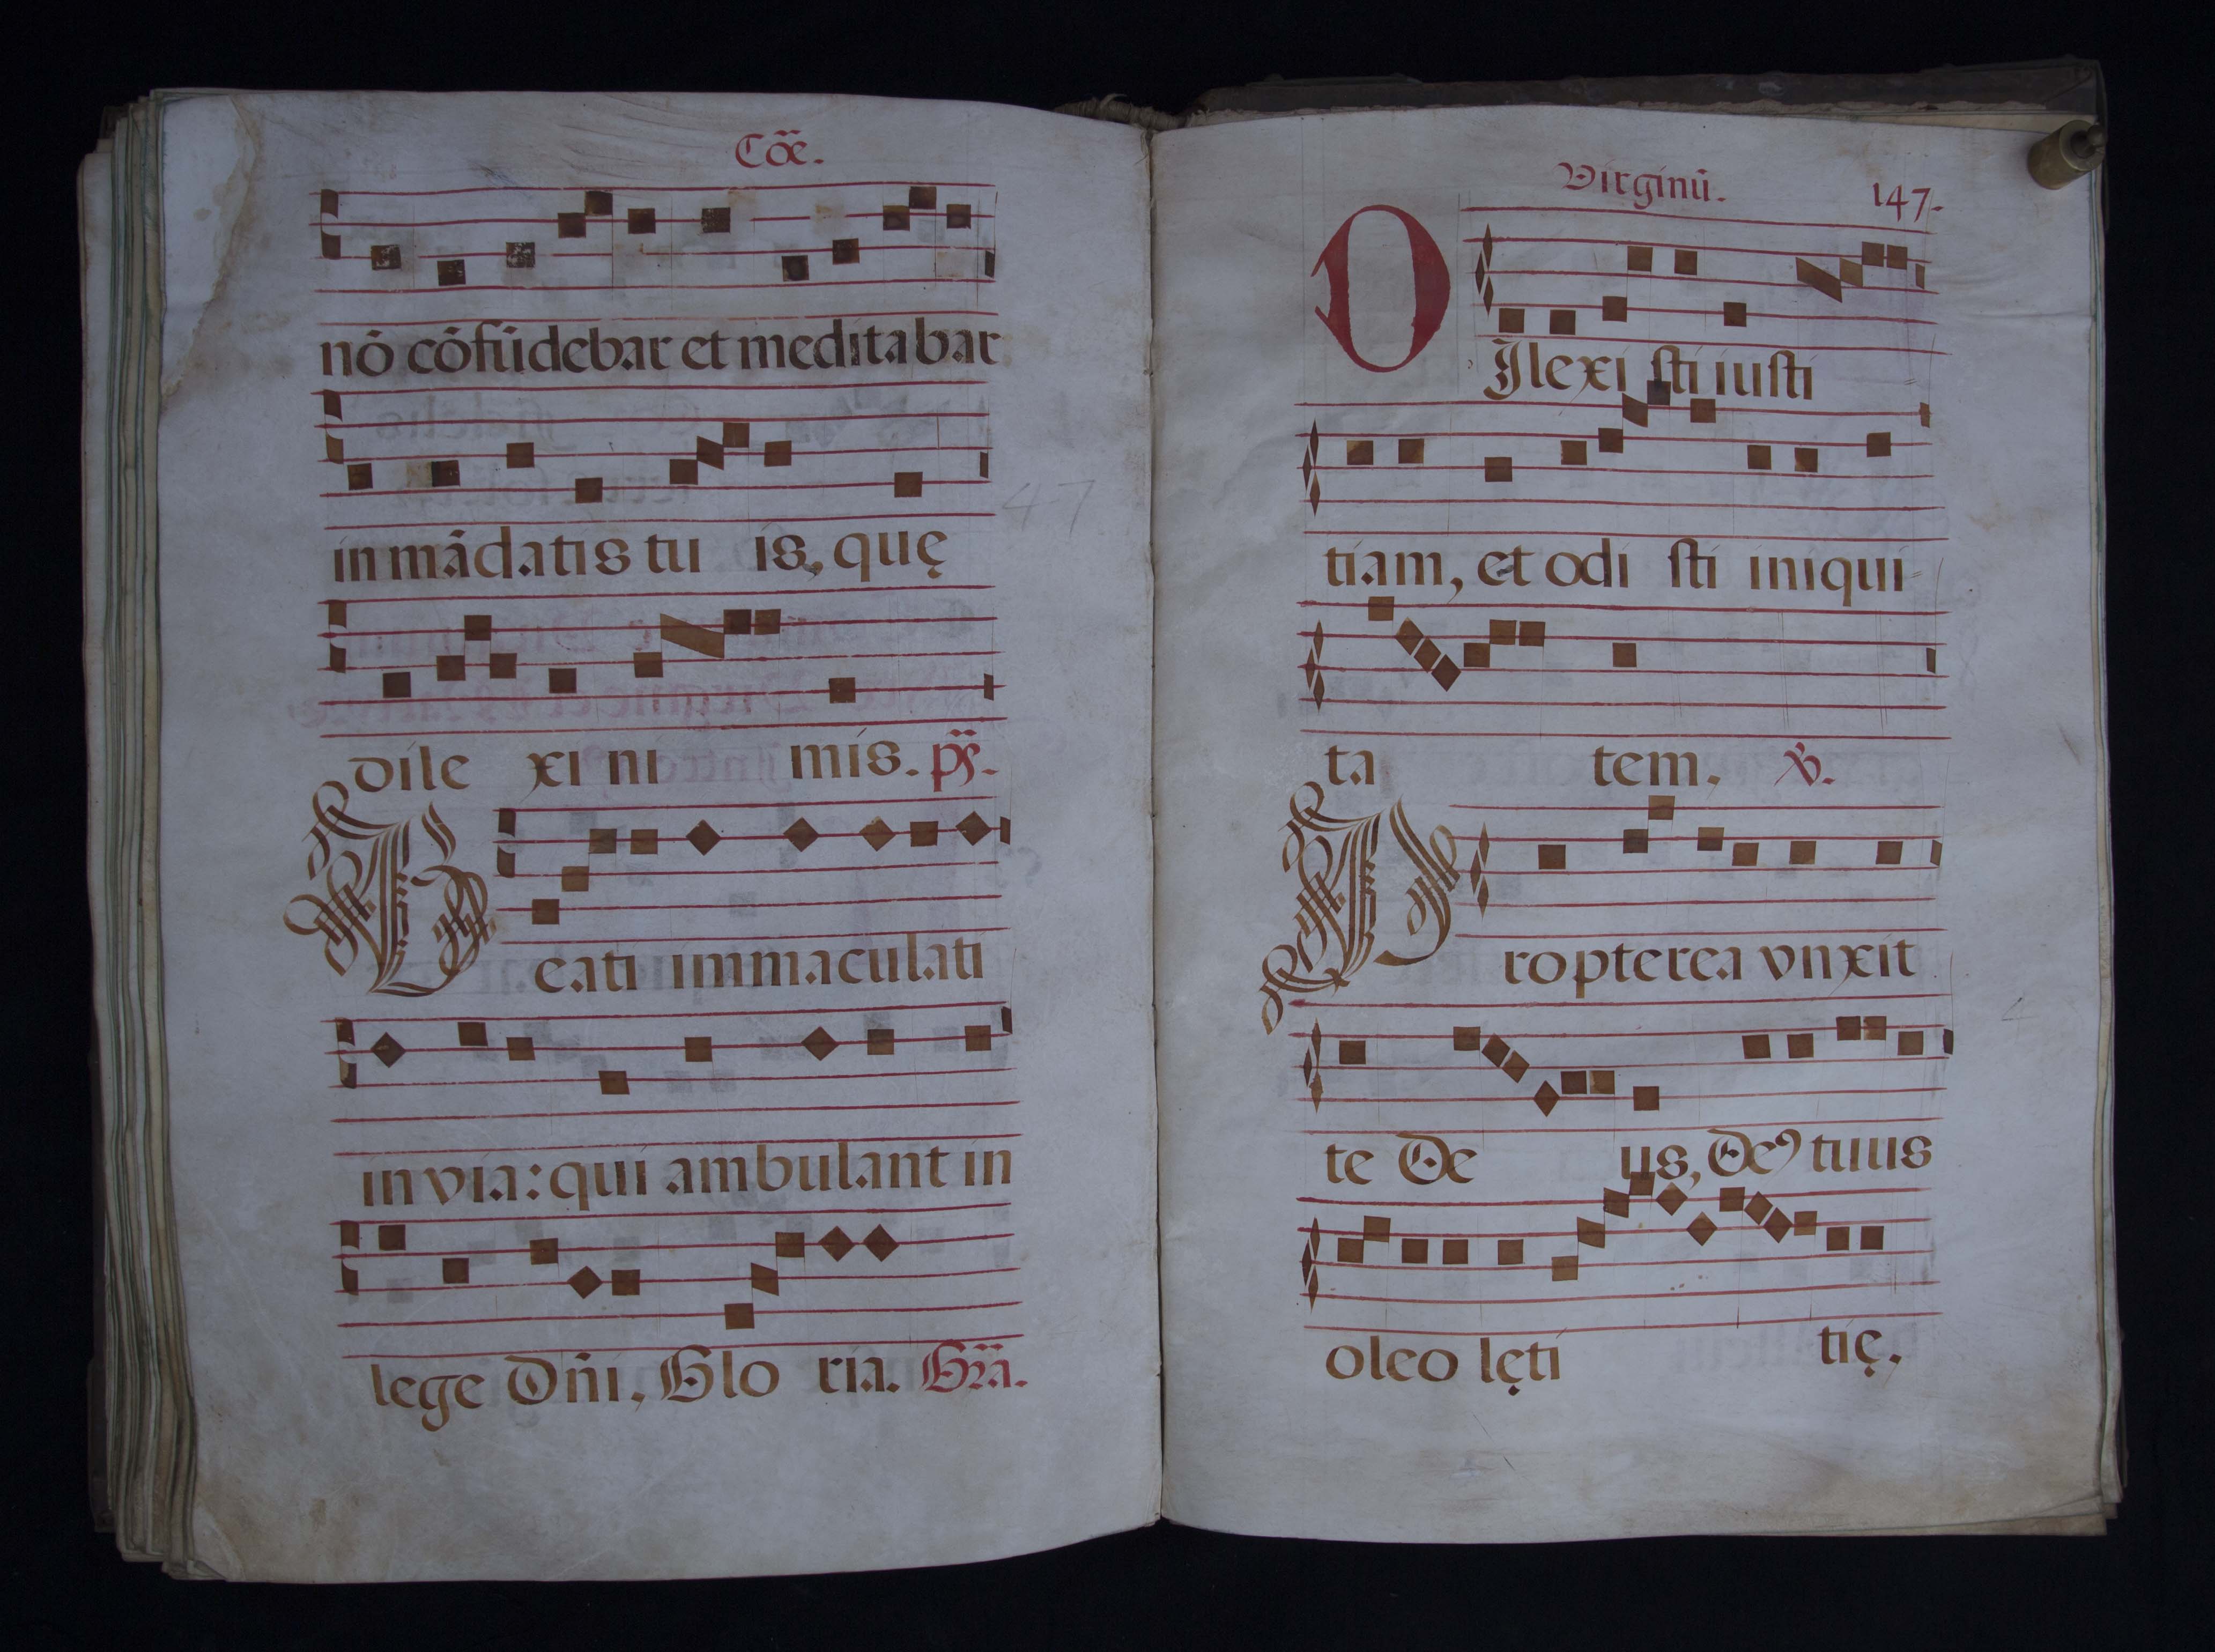 Cōe.
nō cōfūdebar et meditabar
in mādatis tu is, quę
dile xi ni mis. ps.
Beati immaculati
in via: qui ambulant in
lege Dñi, Glo ria. Grã.
Virginū. 147.
Dilexi sti iusti
tiam, et odi sti iniqui
ta tem, ℣.
Propterea vnxit
te De us, Deꝰ tuus
oleo lęti tię.